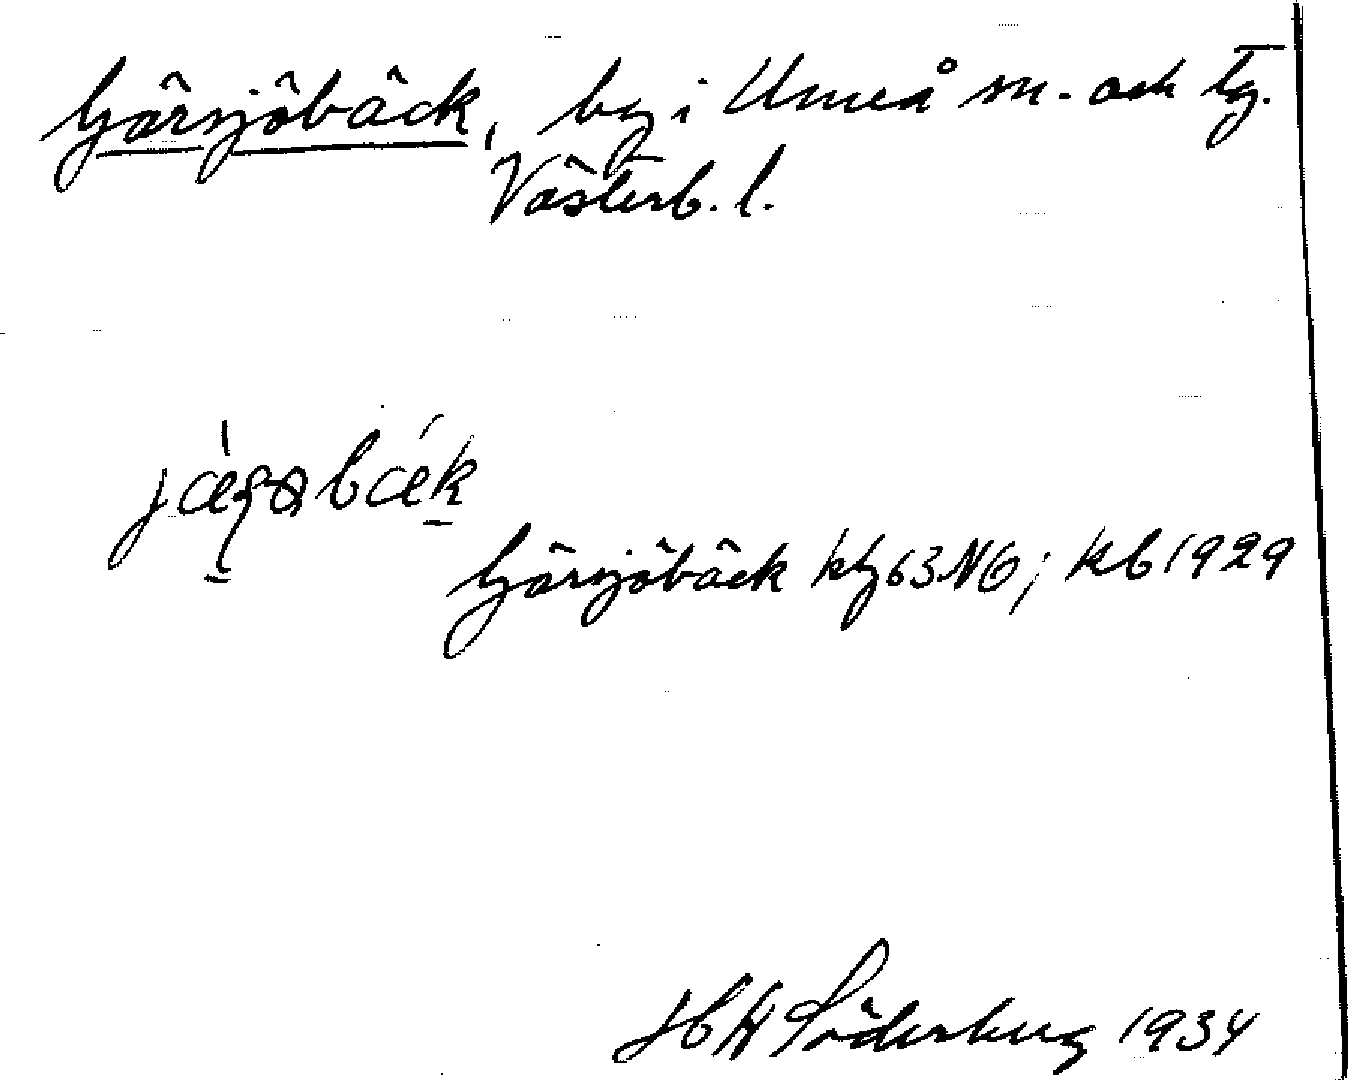 Gärsjöbäck, by i Umeå sn. och tg.
Västerb. l.
Gärsjöbäck kg 63 NO; kb 1929
Söderberg 1934